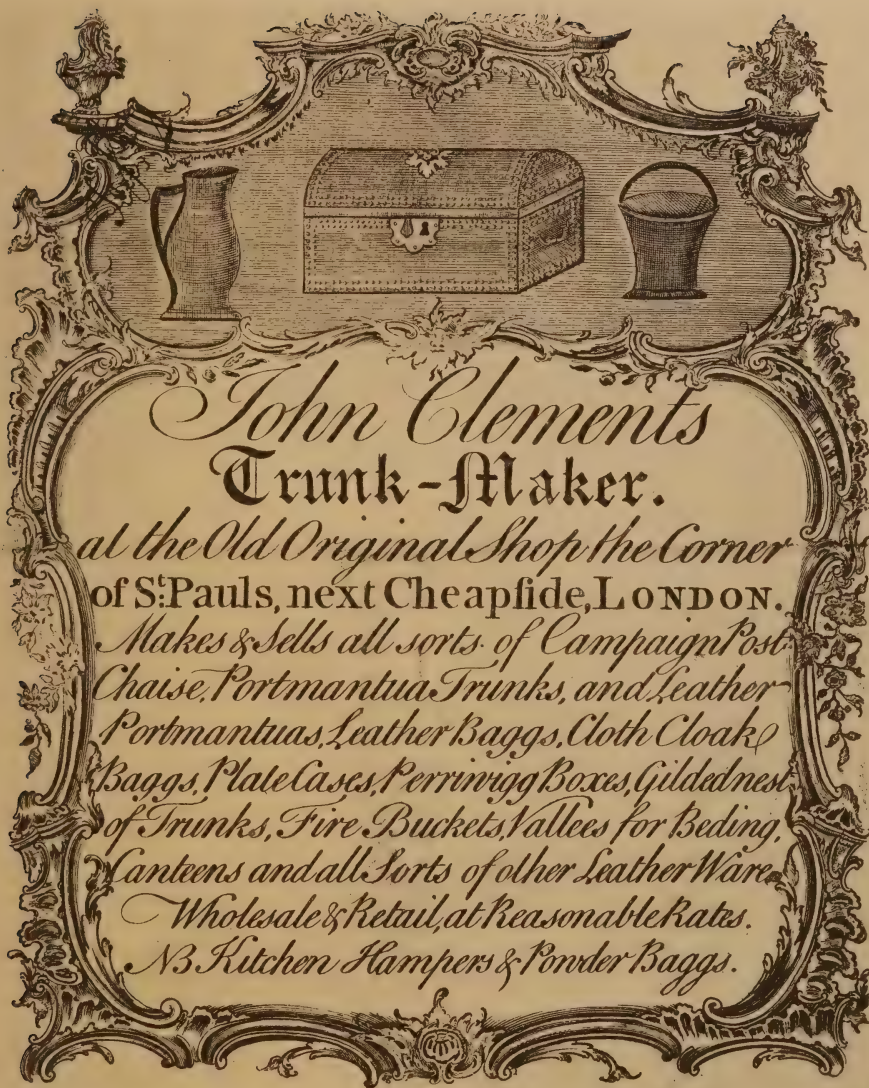 John Clements
Trunk-Maker.
at the Old Original Shop the Corner
of St. Pauls, next Cheapſide, LONDON.
Makes & Sells all sorts of Campaign Post
Chaise, Portmantua Trunks, and Leather
Portmantuas, Leather Baggs, Cloth Cloak
Baggs, Plate Cases, Perriwigg Boxes, Gilded nest
of Trunks, Fire Buckets, Vallees for Beding,
Canteens and all Sorts of other Leather Ware
Wholesale & Retail, at Reasonable Rates.
NB Kitchen Hampers & Powder Baggs.